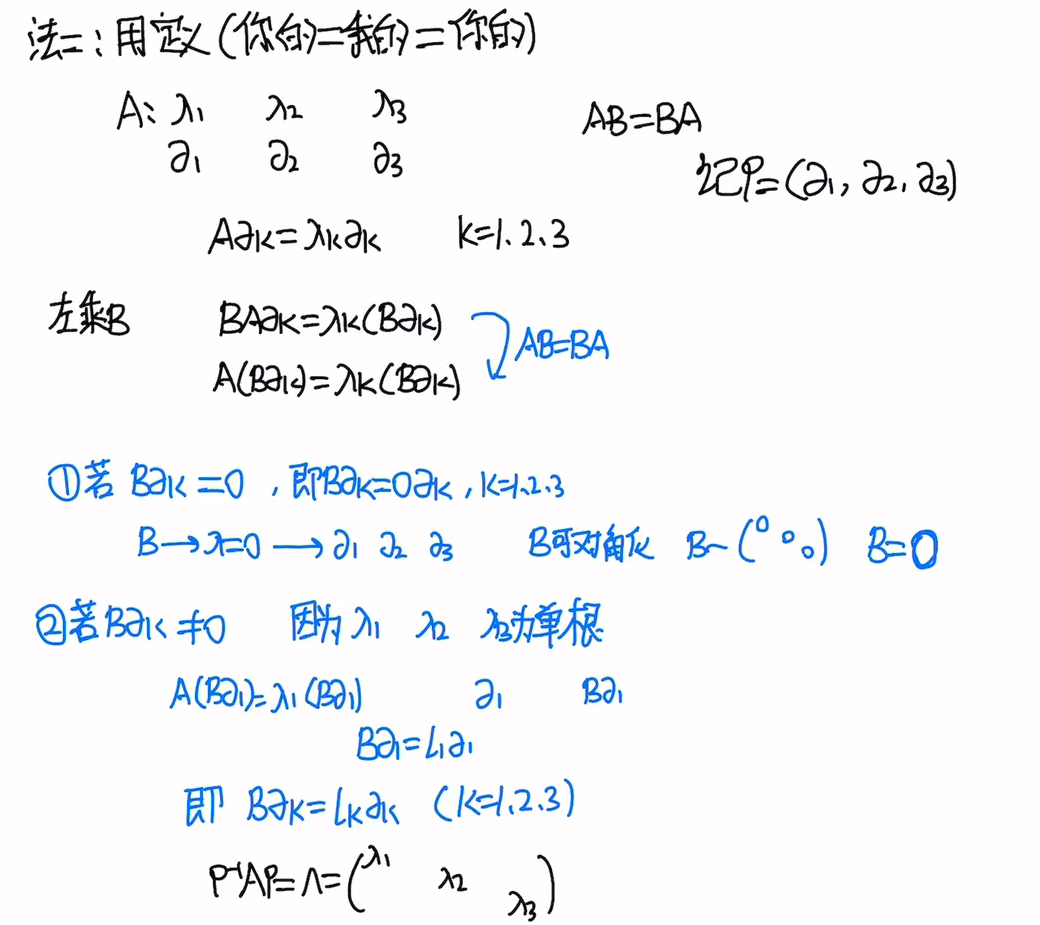 法二:用定义(你的=我的=你的)
A: λ₁ λ₂ λ₃
∂₁ ∂₂ ∂₃
AB=BA
记P=(∂₁, ∂₂, ∂₃)
A∂ₖ=λₖ∂ₖ k=1.2.3
左乘B BA∂ₖ=λₖ(B∂ₖ)
AB=BA
A(B∂ₖ)=λₖ(B∂ₖ)
①若 B∂ₖ=0, 即B∂ₖ=0∂ₖ, k=1.2.3
B→λ=0→∂₁ ∂₂ ∂₃ B可对角化 B~(0 0 0) B=0
②若B∂ₖ≠0 因为λ₁ λ₂ λ₃为单根
A(B∂₁)=λ₁(B∂₁) ∂₁ B∂₁
B∂₁=L₁∂₁
即 B∂ₖ=Lₖ∂ₖ (k=1.2.3)
P⁻¹AP=Λ=(λ₁ λ₂ λ₃)